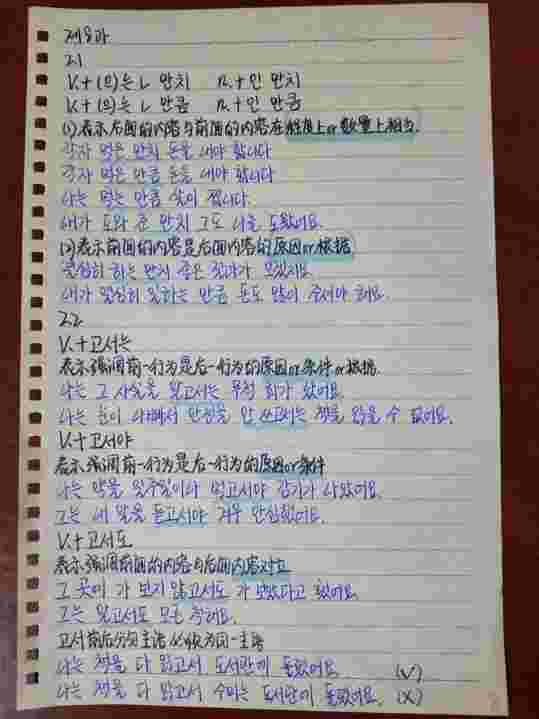 제8과
2.1
V.+(으)는 ㄴ 만치 n.+인 만치
V.+(으)는 ㄴ 만큼 n.+인 만큼
(1)表示后面的内容与前面的内容在程度上or数量上相当.
각자 먹은 만치 돈을 내야 합니다
각자 먹은 만큼 돈을 내야 합니다
나는 먹는 만큼 살이 찝니다.
내가 도와 준 만치 그도 나를 도왔어요.
(2)表示前面的内容是后面内容的原因or根据
열심히 하는 만치 좋은 결과가 오겠지요.
내가 열심히 일하는 만큼 돈도 많이 주셔야 해요.
2.2.
V.+고서는
表示强调前一行为是后一行为的原因or条件or根据.
나는 그 사실을 알고서는 무척 화가 났어요.
나는 눈이 나빠해서 안경을 안 쓰고서는 책을 읽을 수 없어요.
V.+고서야
表示强调前一行为是后一行为的原因or条件
나는 약을 일주일이나 먹고서야 감기가 나았어요.
그는 내 말을 듣고서야 겨우 안심했어요.
V.+고서도
表示强调前面的内容与后面内容对立
그 곳에 가 보지 않고서도 가 보았다고 했어요.
그는 알고서도 모른 척해요.
고서前后分句主语必须为同一主语
나는 책을 다 읽고서 도서관에 돌렸어요. (V)
나는 책을 다 읽고서 수미는 도서관에 돌렸어요. (X)